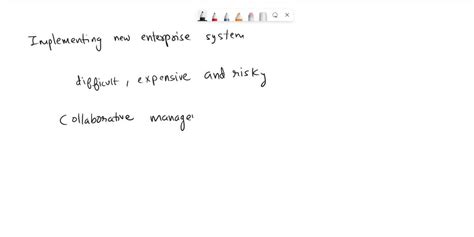 Implementing new enterprise system
difficult, expensive and risky
Collaborative manage